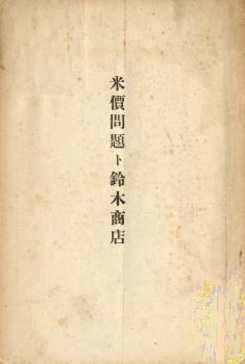 米價問題ト鈴木商店